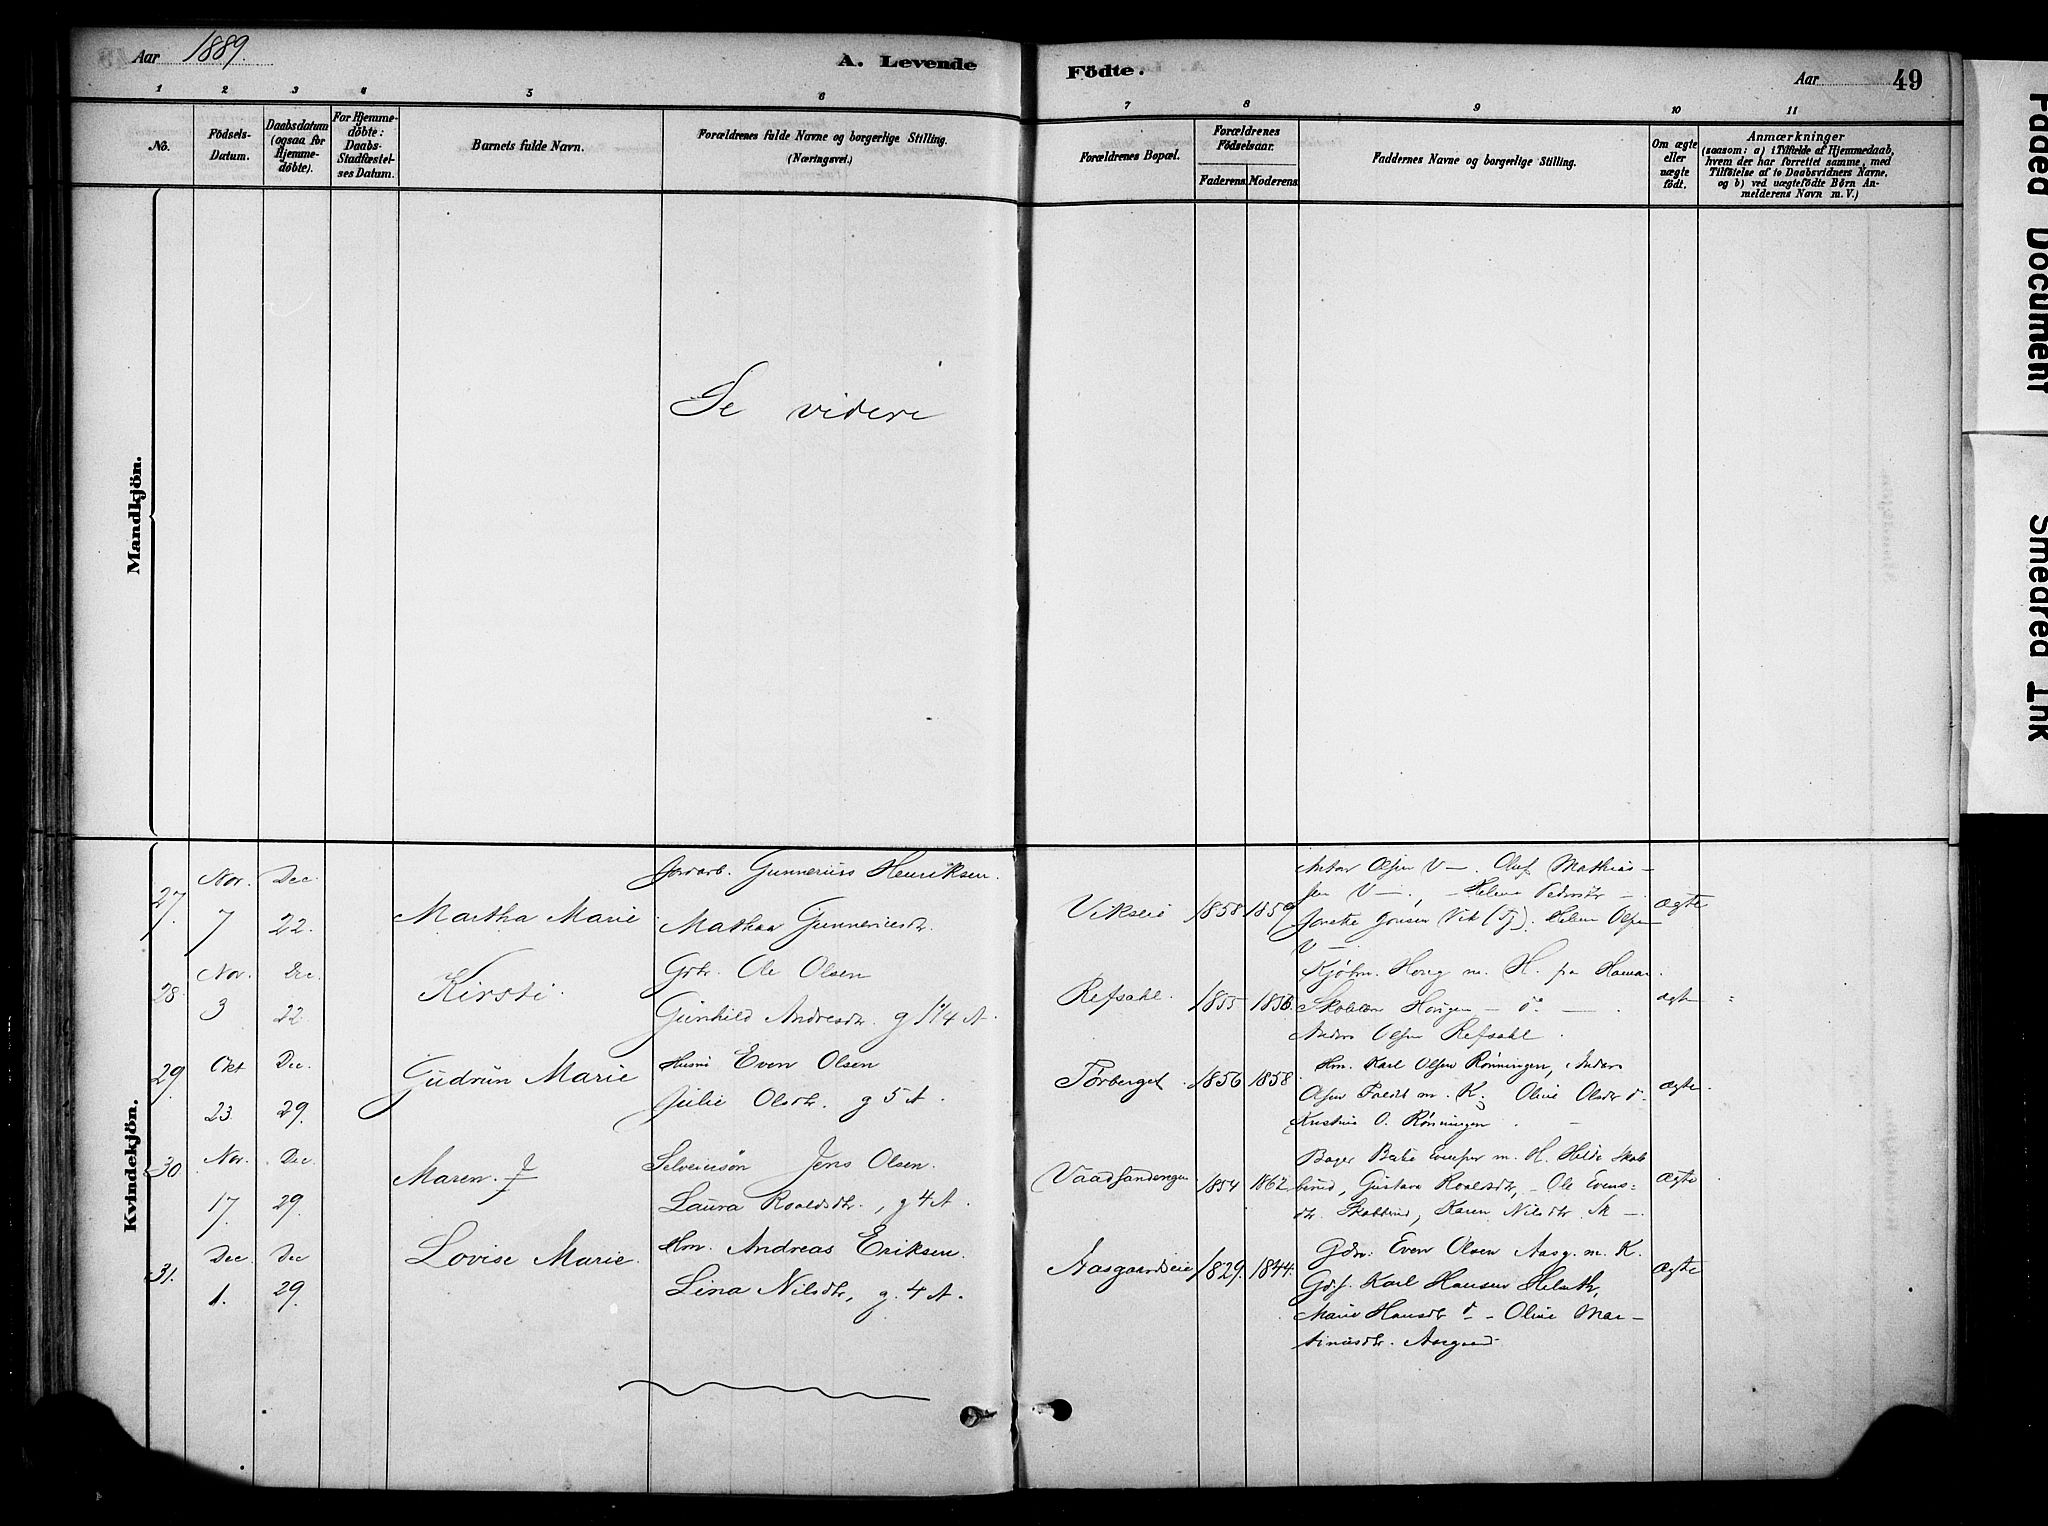 Aar 1889.
A. Levende
Födte.
Aar
49
1
2
3
4
5
6
7
8
9
10
11
No.
Födsels-
Datum.
Daabsdatum
(ogsaa for
Hjemme-
døbte).
For Hjemme-
døbte:
Daabs-
Stadfæstel-
ses Datum.
Barnets fulde Navn.
Forældrenes fulde Navne og borgerlige Stilling.
(Næringsvei.)
Forældrenes Bopæl.
Forældrenes
Födselsaar.
Faderens
Moderens
Faddernes Navne og borgerlige Stilling.
Om ægte
eller
uægte
födt.
Anmærkninger
(saasom: a) i Tilfælde af Hjemmedaab,
hvem der har forrettet samme, med
Tilföielse af to Daabsvidners Navne,
og b) ved uægtefödte Börn An-
melderens Navn m. V.)
Mandkjön.
Se videre
Kvindekjön.
27
Nov.
7
Dec.
22.
Martha Marie
Jordarb. Gunnerius Henriksen.
Mathea Gunneriusdtr.
Vikseie
1858
1859
Anton Olsen V —. Oluf Mathias-
sen V —. — Helene Pedersdtr —
Jonsen Vik
Helene Olsen
V —.
Ægte
28.
Nov.
3
Dec.
22.
Kirsti.
Gbr. Ole Olsen
Gunhild Andresdtr. g 1¾ A.
Refsahl.
1855
1856.
Kjøbm. Houg m. H. fra Hamar.
Hougen — do —
Anders Olsen Refsahl.
ægte
29.
Okt
23.
Dec.
29.
Gudrun Marie
Husm Even Olsen
Julie Olsdtr. g 5 A.
Tørberget.
1856
1858.
Hm. Karl Olsen Rønningen, Anders
Olsen m. K. Olive Olsdtr do.
Kristine O. Rønningen.
Ægte.
30
Nov.
17.
Dec.
29.
Maren. J
Selveiersøn Jens Olsen.
Laura Roaldsdtr., g 4 A.
Vaadsandengen
1854
1862.
Bager Evensen m. H. Hilda Skab-
berud, Gustava Roaldsdtr, — Ole Evens-
Skabberud, Karen Nilsdtr. Sk —.
Ægte
31.
Dec.
1.
Dec
29.
Lovise Marie.
Hm. Andreas Eriksen.
Lina Nilsdtr, g. 4 A.
Aasgaardseie
1829.
1844.
Gbr. Even Olsen Aasg. m. K.
Karl Hansen
Marie Hansdtr do — Olive Mar-
tinusdtr. Aasgaard
Ægte
Faded Document
Smeared Ink